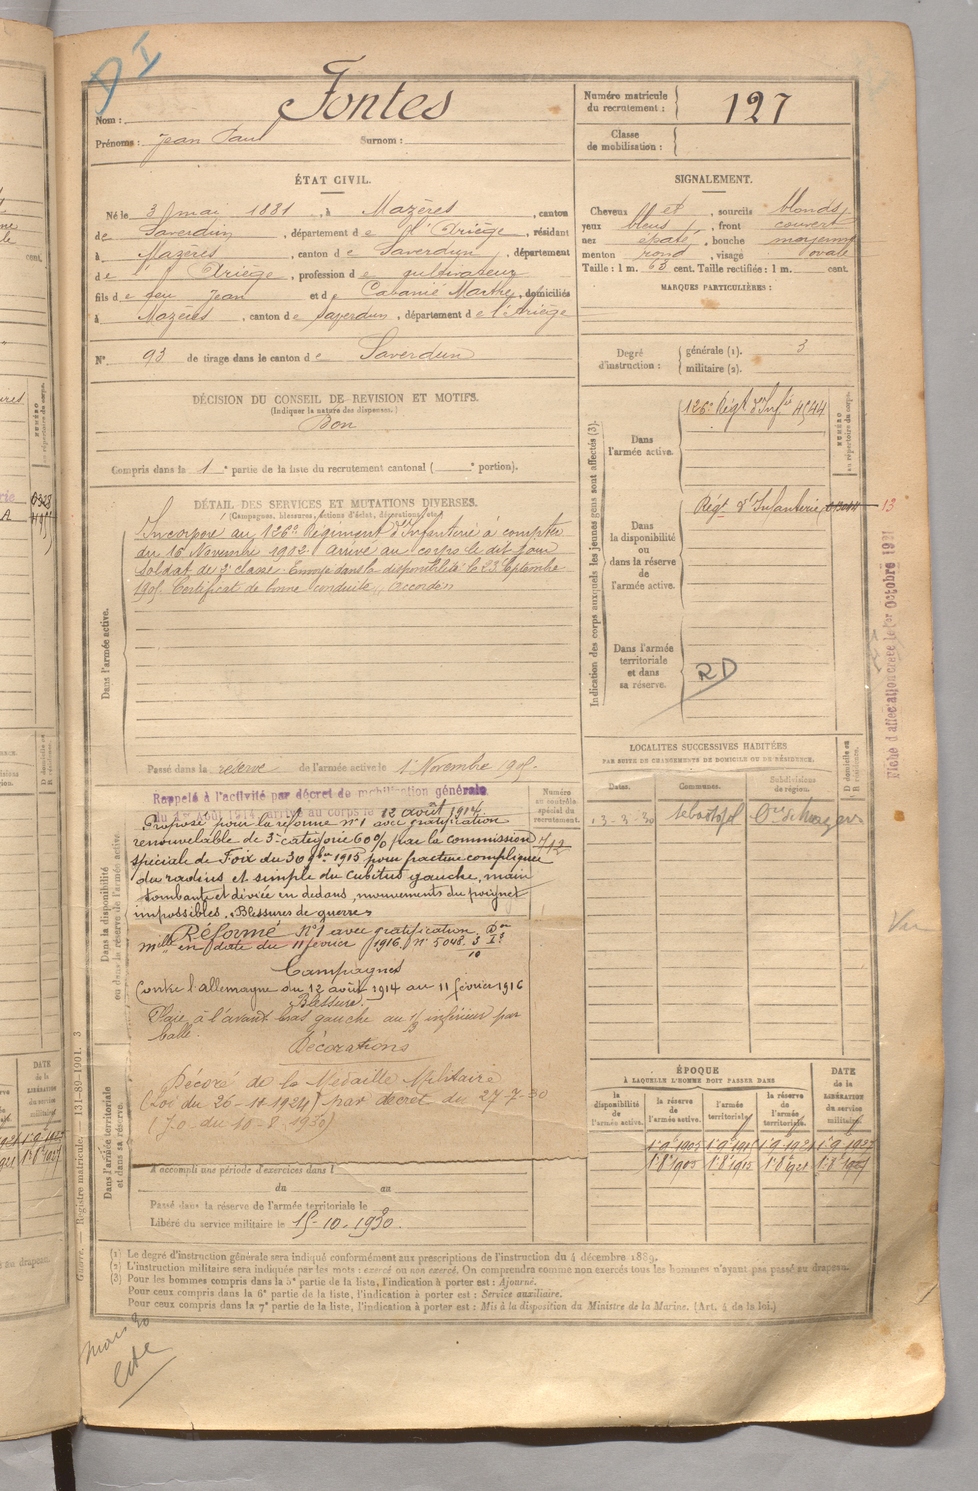 D I
Nom : Fontes
Prénoms : Jean Paul Surnom :
Numéro matricule du recrutement : 127
Classe de mobilisation :
ÉTAT CIVIL.
Né le 3 mai 1881, à Mazères, canton
de Saverdun, département de l'Ariège, résidant
à Mazères, canton de Saverdun, département
de l'Ariège, profession de cultivateur
fils de feu Jean et de Cabanié Marthe, domiciliés
à Mazères, canton de Saverdun, département de l'Ariège
N° 93 de tirage dans le canton de Saverdun
SIGNALEMENT.
Cheveux et, sourcils blonds,
yeux bleus, front couvert
nez épaté, bouche moyenne
menton rond, visage ovale
Taille : 1 m. 63 cent. Taille rectifiée : 1 m. cent.
MARQUES PARTICULIÈRES :
Degré d'instruction : générale (1). 3
militaire (2).
DÉCISION DU CONSEIL DE REVISION ET MOTIFS.
(Indiquer la nature des dispenses.)
Bon
Compris dans la 1e partie de la liste du recrutement cantonal ( e portion).
DÉTAIL DES SERVICES ET MUTATIONS DIVERSES.
(Campagnes, blessures, actions d'éclat, décorations, etc.)
Dans l'armée active.
Incorporé au 126e Régiment d'Infanterie à compter
du 16 Novembre 1902. arrivé au corps le dit jour
soldat de 2e classe. Envoyé dans la disponibilité le 23 Septembre
1905. Certificat de bonne conduite accordé.
Passé dans la réserve de l'armée active le 1 Novembre 1905.
Indication des corps auxquels les jeunes gens sont affectés (3).
Dans l'armée active.
126e Régt d'Infie 4544
NUMÉRO au répertoire du corps.
Dans la disponibilité ou dans la réserve de l'armée active.
Régt d'Infanterie 13
Dans l'armée territoriale et dans sa réserve.
RD
Fiche d'affectation créée le 1er Octobre 1921
Dans la disponibilité ou dans la réserve de l'armée active.
Rappelé à l'activité par décret de mobilisation générale
du 1er Août 1914 arrivé au corps le 12 août 1914
Numéro au contrôle spécial du recrutement.
712
Proposé pour la réforme n°1 avec gratification
renouvelable de 3e catégorie 60% par la commission
spéciale de Foix du 30 9bre 1915 pour fracture compliquée
du radius et simple du cubitus gauche, main
tombante et déviée en dedans, mouvements du poignet
impossibles. "Blessures de guerre"
Réformé N°1 avec gratification
en date du 11 février 1916. N° 5048
Campagnes
Contre l'allemagne du 12 août 1914 au 11 février 1916
Blessure.
Plaie à l'avant bras gauche au 1/3 inférieur par
balle.
Décorations
Décoré de la Médaille Militaire
(Loi du 26-12-1924) par décret du 27-7-30
(J.O. du 10-8-1930)
Dans l'armée territoriale et dans sa réserve.
A accompli une période d'exercices dans l
du au
Passé dans la réserve de l'armée territoriale le
Libéré du service militaire le 15-10-1930.
LOCALITÉS SUCCESSIVES HABITÉES
PAR SUITE DE CHANGEMENTS DE DOMICILE OU DE RÉSIDENCE.
Dates. Communes. Subdivisions de région. D domicile ou R résidence.
13-3-30
ÉPOQUE
À LAQUELLE L'HOMME DOIT PASSER DANS
la disponibilité de l'armée active. la réserve de l'armée active. l'armée territoriale. la réserve de l'armée territoriale. DATE de la LIBÉRATION du service militaire.
(1) Le degré d'instruction générale sera indiqué conformément aux prescriptions de l'instruction du 4 décembre 1889.
(2) L'instruction militaire sera indiquée par les mots : exercé ou non exercé. On comprendra comme non exercés tous les hommes n'ayant pas passé au drapeau.
(3) Pour les hommes compris dans la 5e partie de la liste, l'indication à porter est : Ajourné.
Pour ceux compris dans la 6e partie de la liste, l'indication à porter est : Service auxiliaire.
Pour ceux compris dans la 7e partie de la liste, l'indication à porter est : Mis à la disposition du Ministre de la Marine. (Art. 4 de la loi.)
Guerre. — Registre matricule. — 131-89-1901. 3